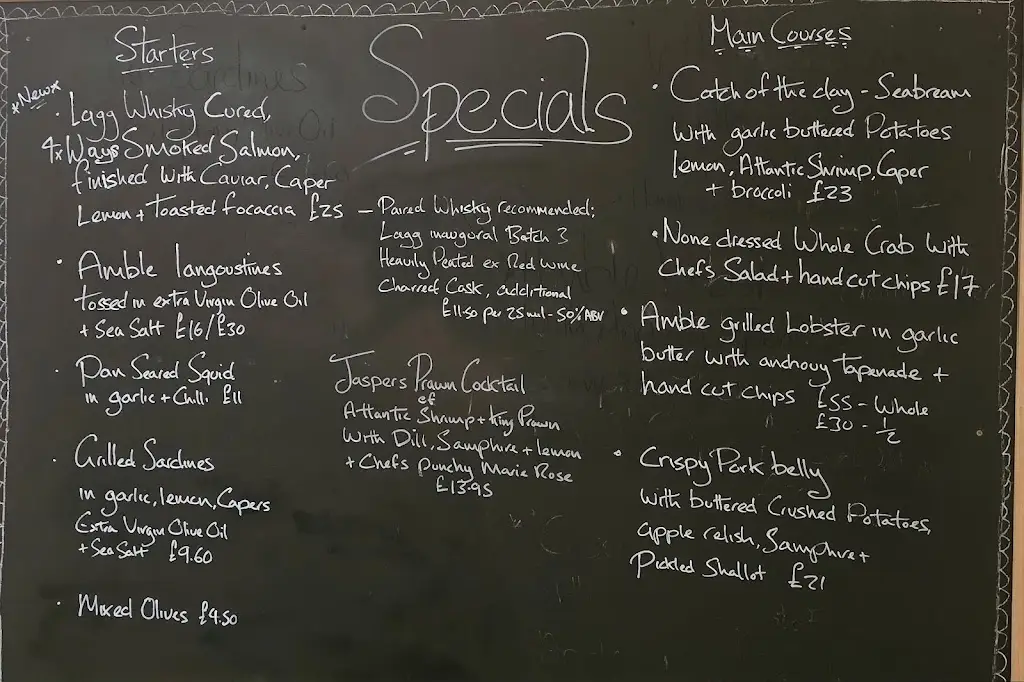 Specials
Starters
*New*
· Lagg Whisky Cured,
4x Ways Smoked Salmon,
finished with Caviar, Caper
Lemon + Toasted focaccia £25
— Paired Whisky recommended:
Lagg inaugural Batch 3
Heavily Peated ex Red Wine
Charred Cask, additional
£11.50 per 25ml - 50% ABV
· Amble langoustines
tossed in extra Virgin Olive Oil
+ Sea Salt £16/£30
· Pan Seared Squid
in garlic + Chilli £11
· Grilled Sardines
in garlic, lemon, Capers
Extra Virgin Olive Oil
+ Sea Salt £9.60
· Mixed Olives £4.50
Jaspers Prawn Cocktail
of
Atlantic Shrimp + King Prawn
With Dill, Samphire + lemon
+ Chefs punchy Marie Rose
£13.95
Main Courses
· Catch of the day - Seabream
with garlic buttered Potatoes
lemon, Atlantic Shrimp, Caper
+ broccoli £23
· None dressed Whole Crab with
Chefs Salad + hand cut chips £17
· Amble grilled Lobster in garlic
butter with anchovy Tapenade +
hand cut chips £55 - Whole
£30 - 1/2
· Crispy Pork belly
with buttered Crushed Potatoes,
apple relish, Samphire +
Pickled Shallot £21